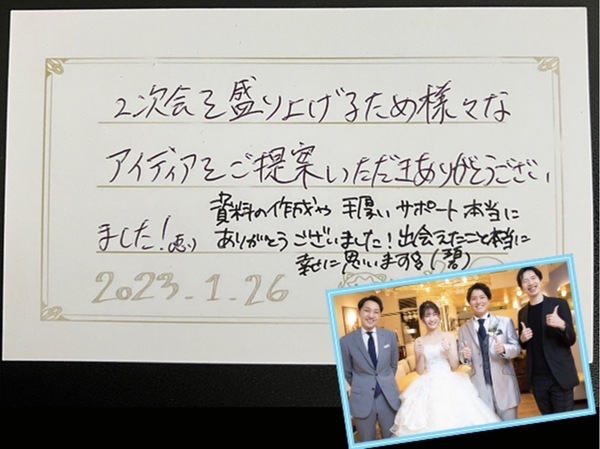 2次会を盛り上げるため様々な
アイディアをご提案いただきありがとうござい
ました!
資料の作成や手厚いサポート本当に
ありがとうございました!出会えたこと本当に
幸せに思います(碧)
2023.1.26